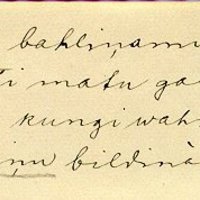 bahliņami
i matu ga
kungi wah
iņu bildinà